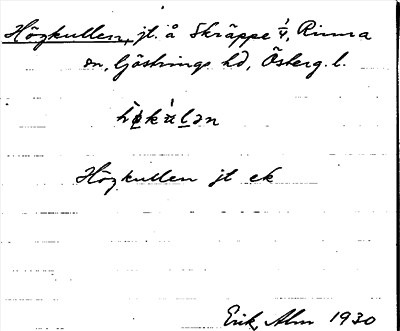 Högkullen, jt. å Skräppe 1/4, Rinna
sn, Göstrings hd, Österg. l.
Högkullen jt ek
Erik Alm 1930